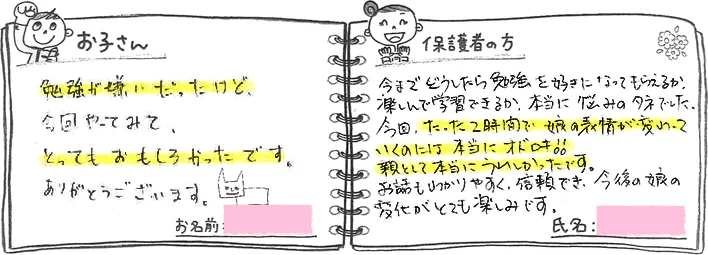 お子さん
勉強が嫌いだったけど、
今回やってみて、
とってもおもしろかったです。
ありがとうございます。
お名前:
保護者の方
今までどうしたら勉強を好きになってもらえるか、
楽しんで学習できるか、本当に悩みのタネでした。
今回、たった2時間で娘の表情が変わって
いくのには本当にオドロキ!!
親として本当にうれしかったです。
お話もわかりやすく、信頼でき、今後の娘の
変化がとても楽しみです。
氏名: